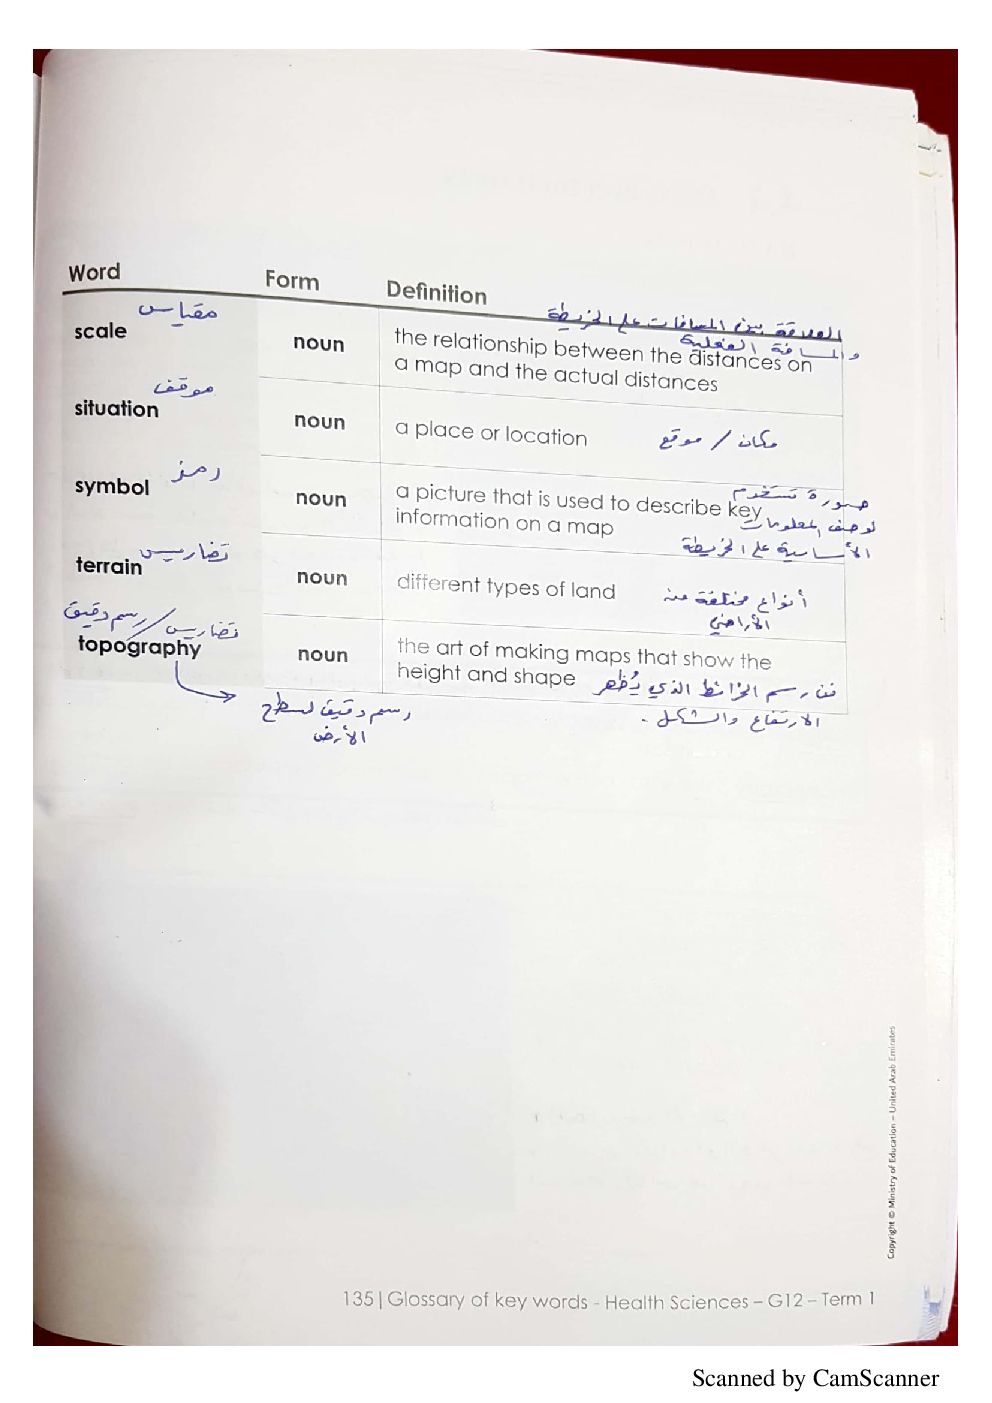 Word
Form
Definition
مقياس
العلاقة بين المسافات على الخريطة
والمسافة الفعلية
scale
noun
the relationship between the distances on
a map and the actual distances
موقف
situation
noun
a place or location
مكان / موقع
رمز
symbol
noun
a picture that is used to describe key
information on a map
صورة تستخدم
لوصف المعلومات
الأساسية على الخريطة
تضاريس
terrain
noun
different types of land
أنواع مختلفة من
الأراضي
تضاريس / رسم دقيق
topography
noun
the art of making maps that show the
height and shape
فن رسم الخرائط الذي يُظهر
الارتفاع والشكل .
رسم دقيق لسطح
الأرض
Copyright © Ministry of Education – United Arab Emirates
135 | Glossary of key words - Health Sciences – G12 – Term 1
Scanned by CamScanner